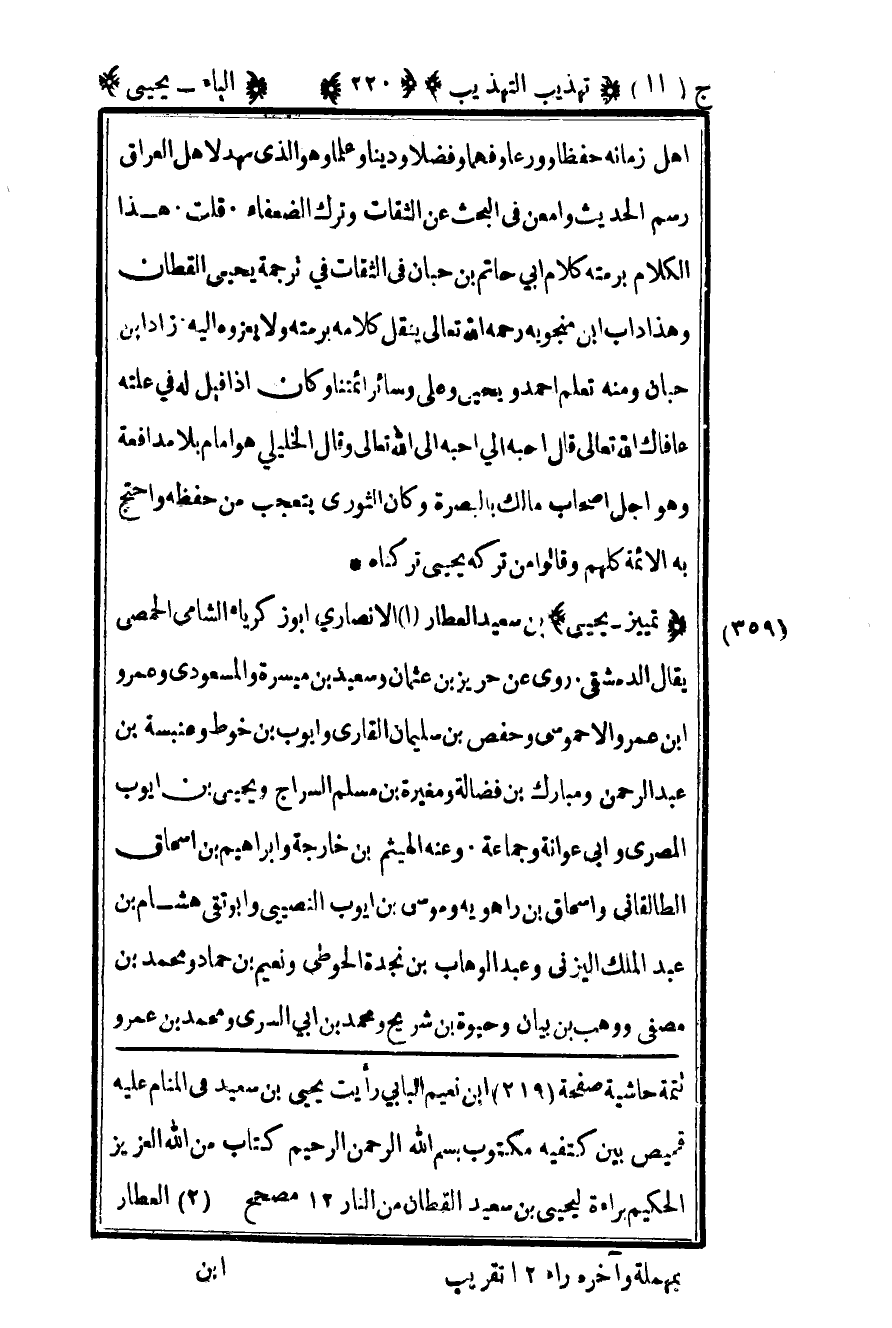 ج (١١) ﴿ تهذيب التهذيب ﴾ ﴿ ٢٢٠ ﴾ ﴿ الياء ـ يحيى ﴾
اهل زمانه حفظا وورعا وفهما وفضلا ودينا وعلما وهو الذى مهد لاهل العراق
رسم الحديث وامعن فى البحث عن الثقات وترك الضعفاء ٠ قلت ٠ هـذا
الكلام برمته كلام ابي حاتم بن حبان فى الثقات في ترجمة يحيى القطان
وهذا داب ابن منجويه رحمه الله تعالى ينقل كلامه برمته ولا يعزوه اليه ٠ زاد ابن
حبان ومنه تعلم احمد ويحيى وعلى وسائر ائمتنا وكان اذا قيل له في علته
عافاك الله تعالى قال احبه الي احبه الى الله تعالى وقال الخليلي هو امام بلا مدافعة
وهو اجل اصحاب مالك بالبصرة وكان الثورى يتعجب من حفظه واحتج
به الائمة كلهم وقالوا من تركه يحيى تركناه *
﴿ تمييز ـ يحيى ﴾ بن سعيد العطار (١) الانصاري ابو زكرياء الشامى الحمصى
(٣٥٩)
يقال الدمشقى ٠ روى عن حريز بن عثمان وسعيد بن ميسرة والمسعودى وعمرو
ابن عمرو الاحموسى وحفص بن سليمان القارى وايوب بن خوط وعنبسة بن
عبد الرحمن ومبارك بن فضالة ومغيرة بن مسلم السراج ويحيى بن ايوب
المصرى وابي عوانة وجماعة ٠ وعنه الهيثم بن خارجة وابراهيم بن اسحاق
الطالقانى واسحاق بن راهويه وموسى بن ايوب النصيبى وابو تقى هشـام بن
عبد الملك اليزنى وعبد الوهاب بن نجدة الحوطى ونعيم بن حماد ومحمد بن
مصفى ووهب بن بيان وحيوة بن شريح ومحمد بن ابي السرى ومحمد بن عمرو
تتمة حاشية صفحة (٢١٩) ابن نعيم البابي رأيت يحيى بن سعيد فى المنام عليه
قميص بين كتفيه مكتوب بسم الله الرحمن الرحيم كتاب من الله العزيز
الحكيم براءة ليحيى بن سعيد القطان من النار ١٢ مصحح (٢) العطار
بمهملة وآخره راء ١٢ تقريب ابن